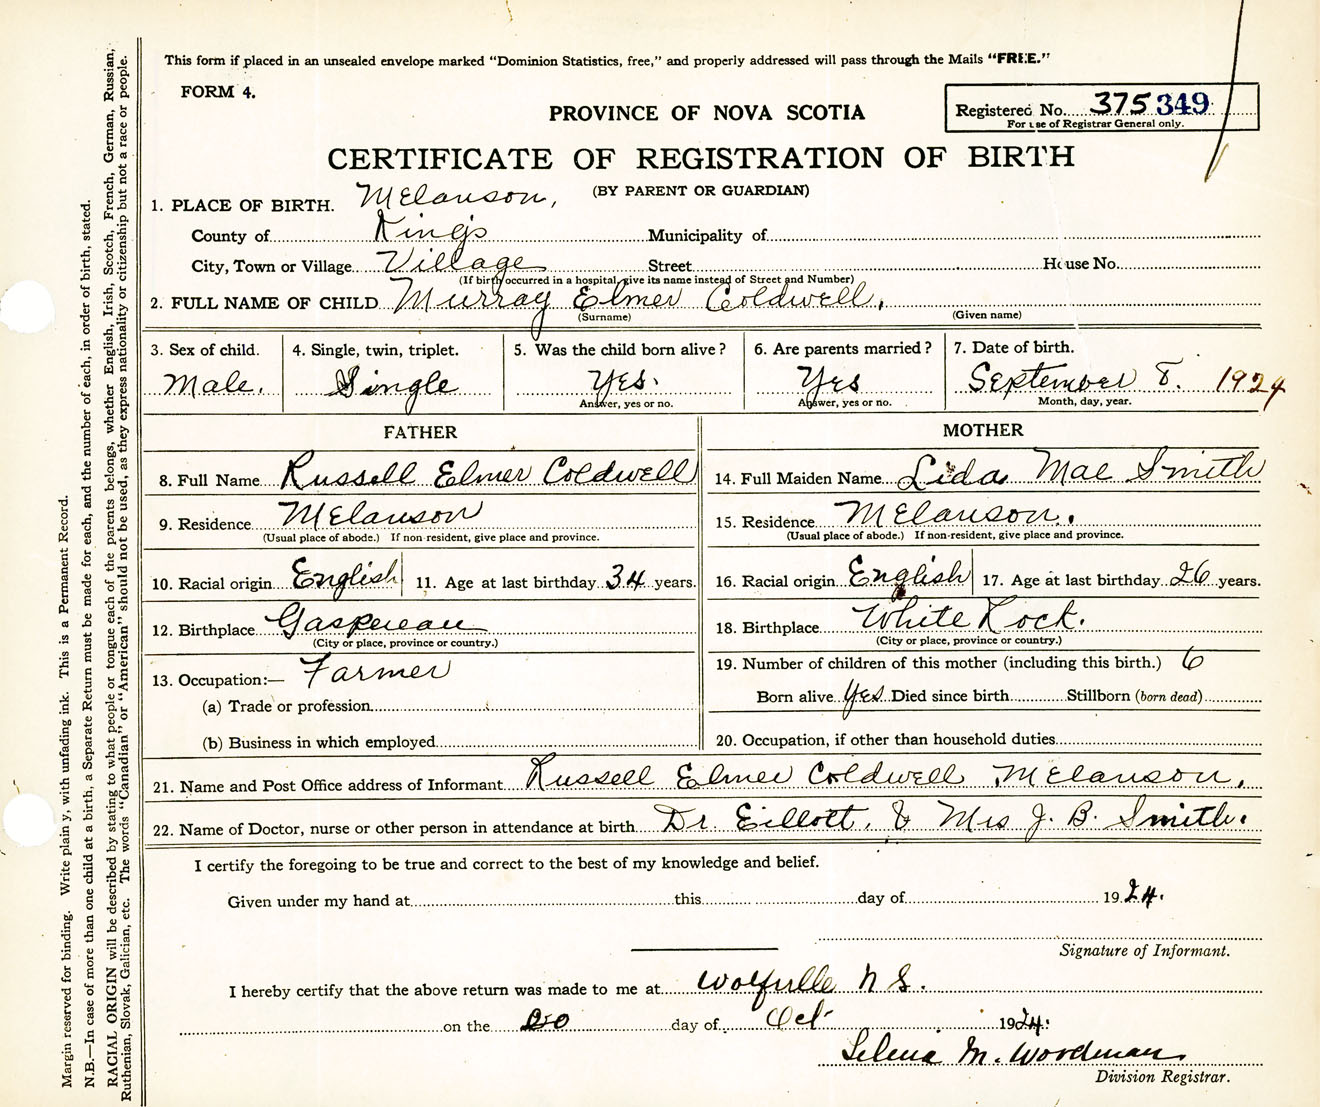 This form if placed in an unsealed envelope marked "Dominion Statistics, free," and properly addressed will pass through the Mails "FREE."
FORM 4.
PROVINCE OF NOVA SCOTIA
Registered No. 375 349
For use of Registrar General only.
CERTIFICATE OF REGISTRATION OF BIRTH
(BY PARENT OR GUARDIAN)
1. PLACE OF BIRTH. Melanson,
County of King's Municipality of
City, Town or Village Village Street House No.
(If birth occurred in a hospital, give its name instead of Street and Number)
2. FULL NAME OF CHILD Murray Elmer Coldwell,
(Surname) (Given name)
3. Sex of child. 4. Single, twin, triplet. 5. Was the child born alive? 6. Are parents married? 7. Date of birth.
Male. Single Yes. Yes September 8. 1924
Answer, yes or no. Answer, yes or no. Month, day, year.
FATHER
8. Full Name Russell Elmer Coldwell
9. Residence Melanson
(Usual place of abode.) If non-resident, give place and province.
10. Racial origin English 11. Age at last birthday 34 years.
12. Birthplace Gaspereau
(City or place, province or country.)
13. Occupation:— Farmer
(a) Trade or profession
(b) Business in which employed
MOTHER
14. Full Maiden Name Lida Mae Smith
15. Residence Melanson.
(Usual place of abode.) If non-resident, give place and province.
16. Racial origin English 17. Age at last birthday 26 years.
18. Birthplace White Rock.
(City or place, province or country.)
19. Number of children of this mother (including this birth.) 6
Born alive Yes Died since birth Stillborn (born dead)
20. Occupation, if other than household duties
21. Name and Post Office address of Informant Russell Elmer Coldwell Melanson,
22. Name of Doctor, nurse or other person in attendance at birth Dr Eillott, & Mrs J. B. Smith.
I certify the foregoing to be true and correct to the best of my knowledge and belief.
Given under my hand at this day of 1924.
Signature of Informant.
I hereby certify that the above return was made to me at Wolfville N S.
on the day of Oct 1924.
Selena M. Woodman
Division Registrar.
Margin reserved for binding. Write plainly, with unfading ink. This is a Permanent Record.
N.B.—In case of more than one child at a birth, a Separate Return must be made for each, and the number of each, in order of birth, stated.
RACIAL ORIGIN will be described by stating to what people or tongue each of the parents belongs, whether English, Irish, Scotch, French, German, Russian,
Ruthenian, Slovak, Galician, etc. The words "Canadian" or "American" should not be used, as they express nationality or citizenship but not a race or people.